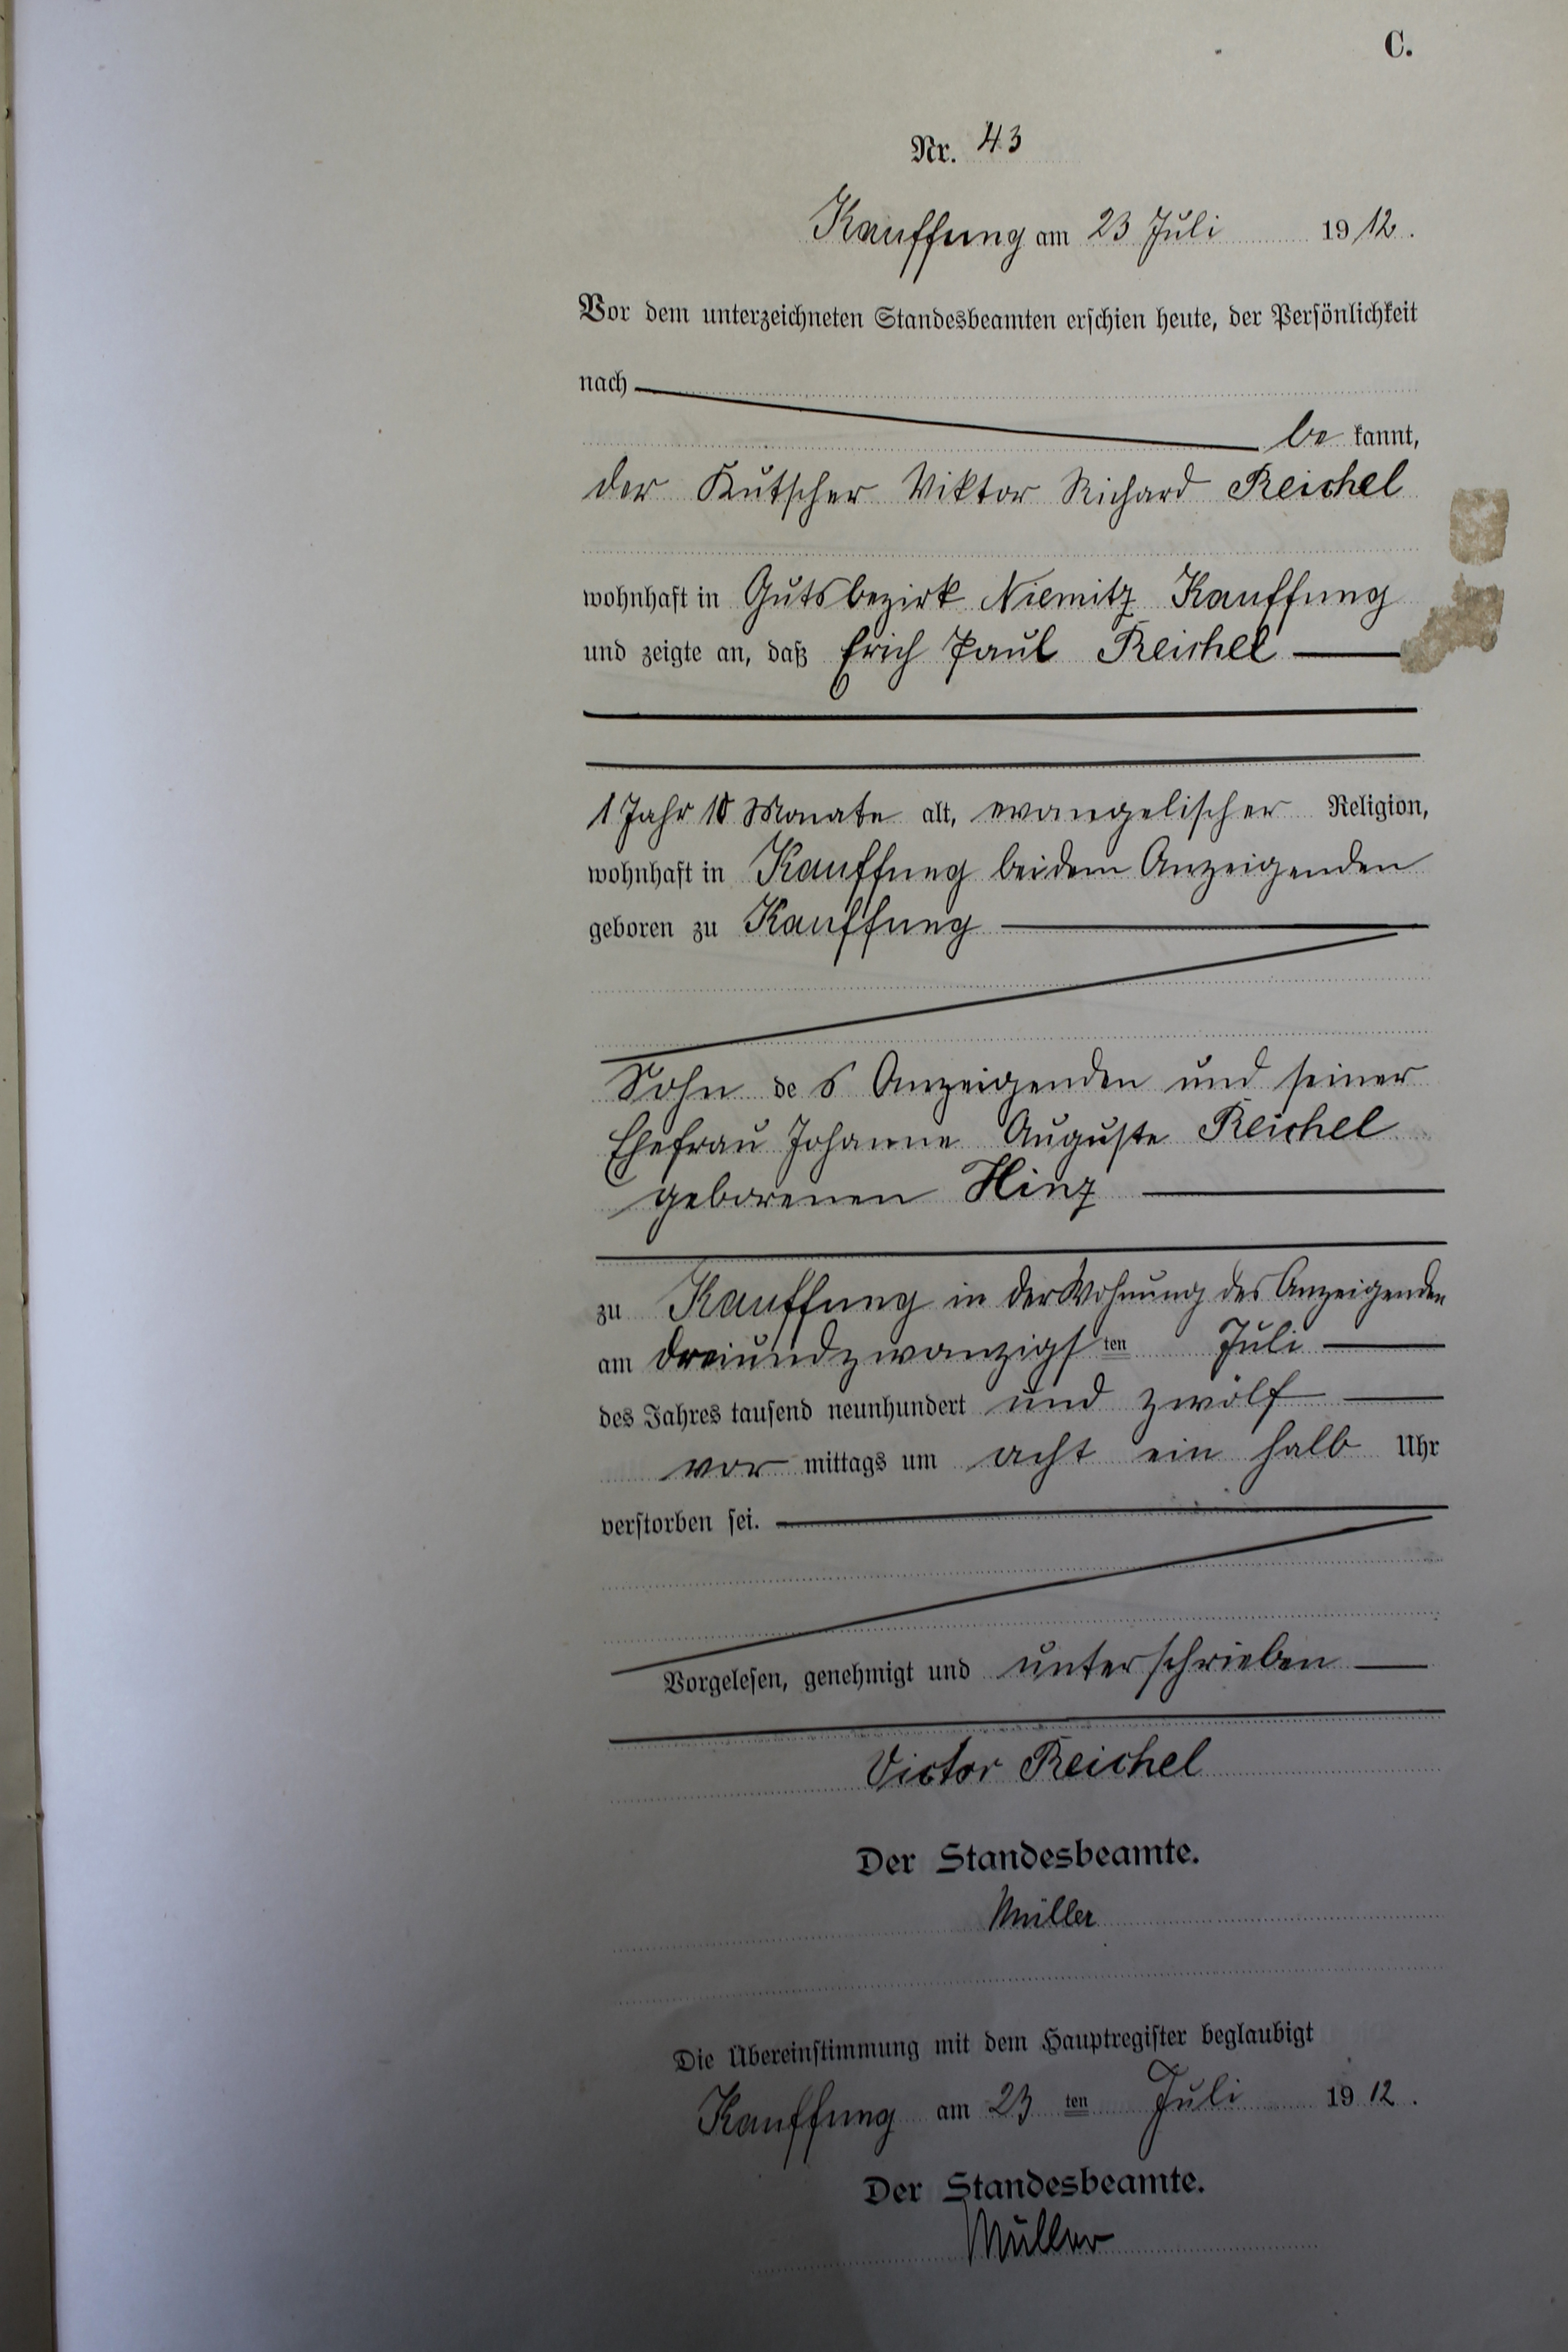 C.
Nr. 43
Kauffung am 23 Juli 1912.
Vor dem unterzeichneten Standesbeamten erschien heute, der Persönlichkeit
nach
be kannt,
der Kutscher Viktor Richard Reichel
wohnhaft in Gutsbezirk Niemitz Kauffung
und zeigte an, daß Erich Paul Reichel
1 Jahr 10 Monate alt, evangelischer Religion,
wohnhaft in Kauffung bei dem Anzeigenden
geboren zu Kauffung
Sohn des Anzeigenden und seiner
Ehefrau Johanne Auguste Reichel
geborenen Hinz
zu Kauffung in der Wohnung des Anzeigenden
am dreiundzwanzigsten Juli
des Jahres tausend neunhundert und zwölf
vor mittags um acht ein halb Uhr
verstorben sei.
Vorgelesen, genehmigt und unterschrieben
Victor Reichel
Der Standesbeamte.
Müller
Die Übereinstimmung mit dem Hauptregister beglaubigt
Kauffung am 23 ten Juli 1912.
Der Standesbeamte.
Müller